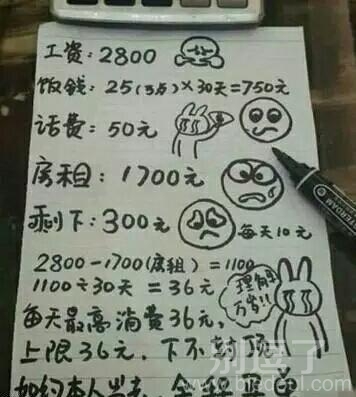 工资：2800
饭钱：25（3点）×30天=750元
话费：50元
房租：1700元
剩下：300元
每天10元
2800－1700（房租）=1100
1100÷30天=36元
理解万岁!!
每天最高消费36元，
上限36元，下不封顶
如约本人出去，
别逗了
www.biedoul.com